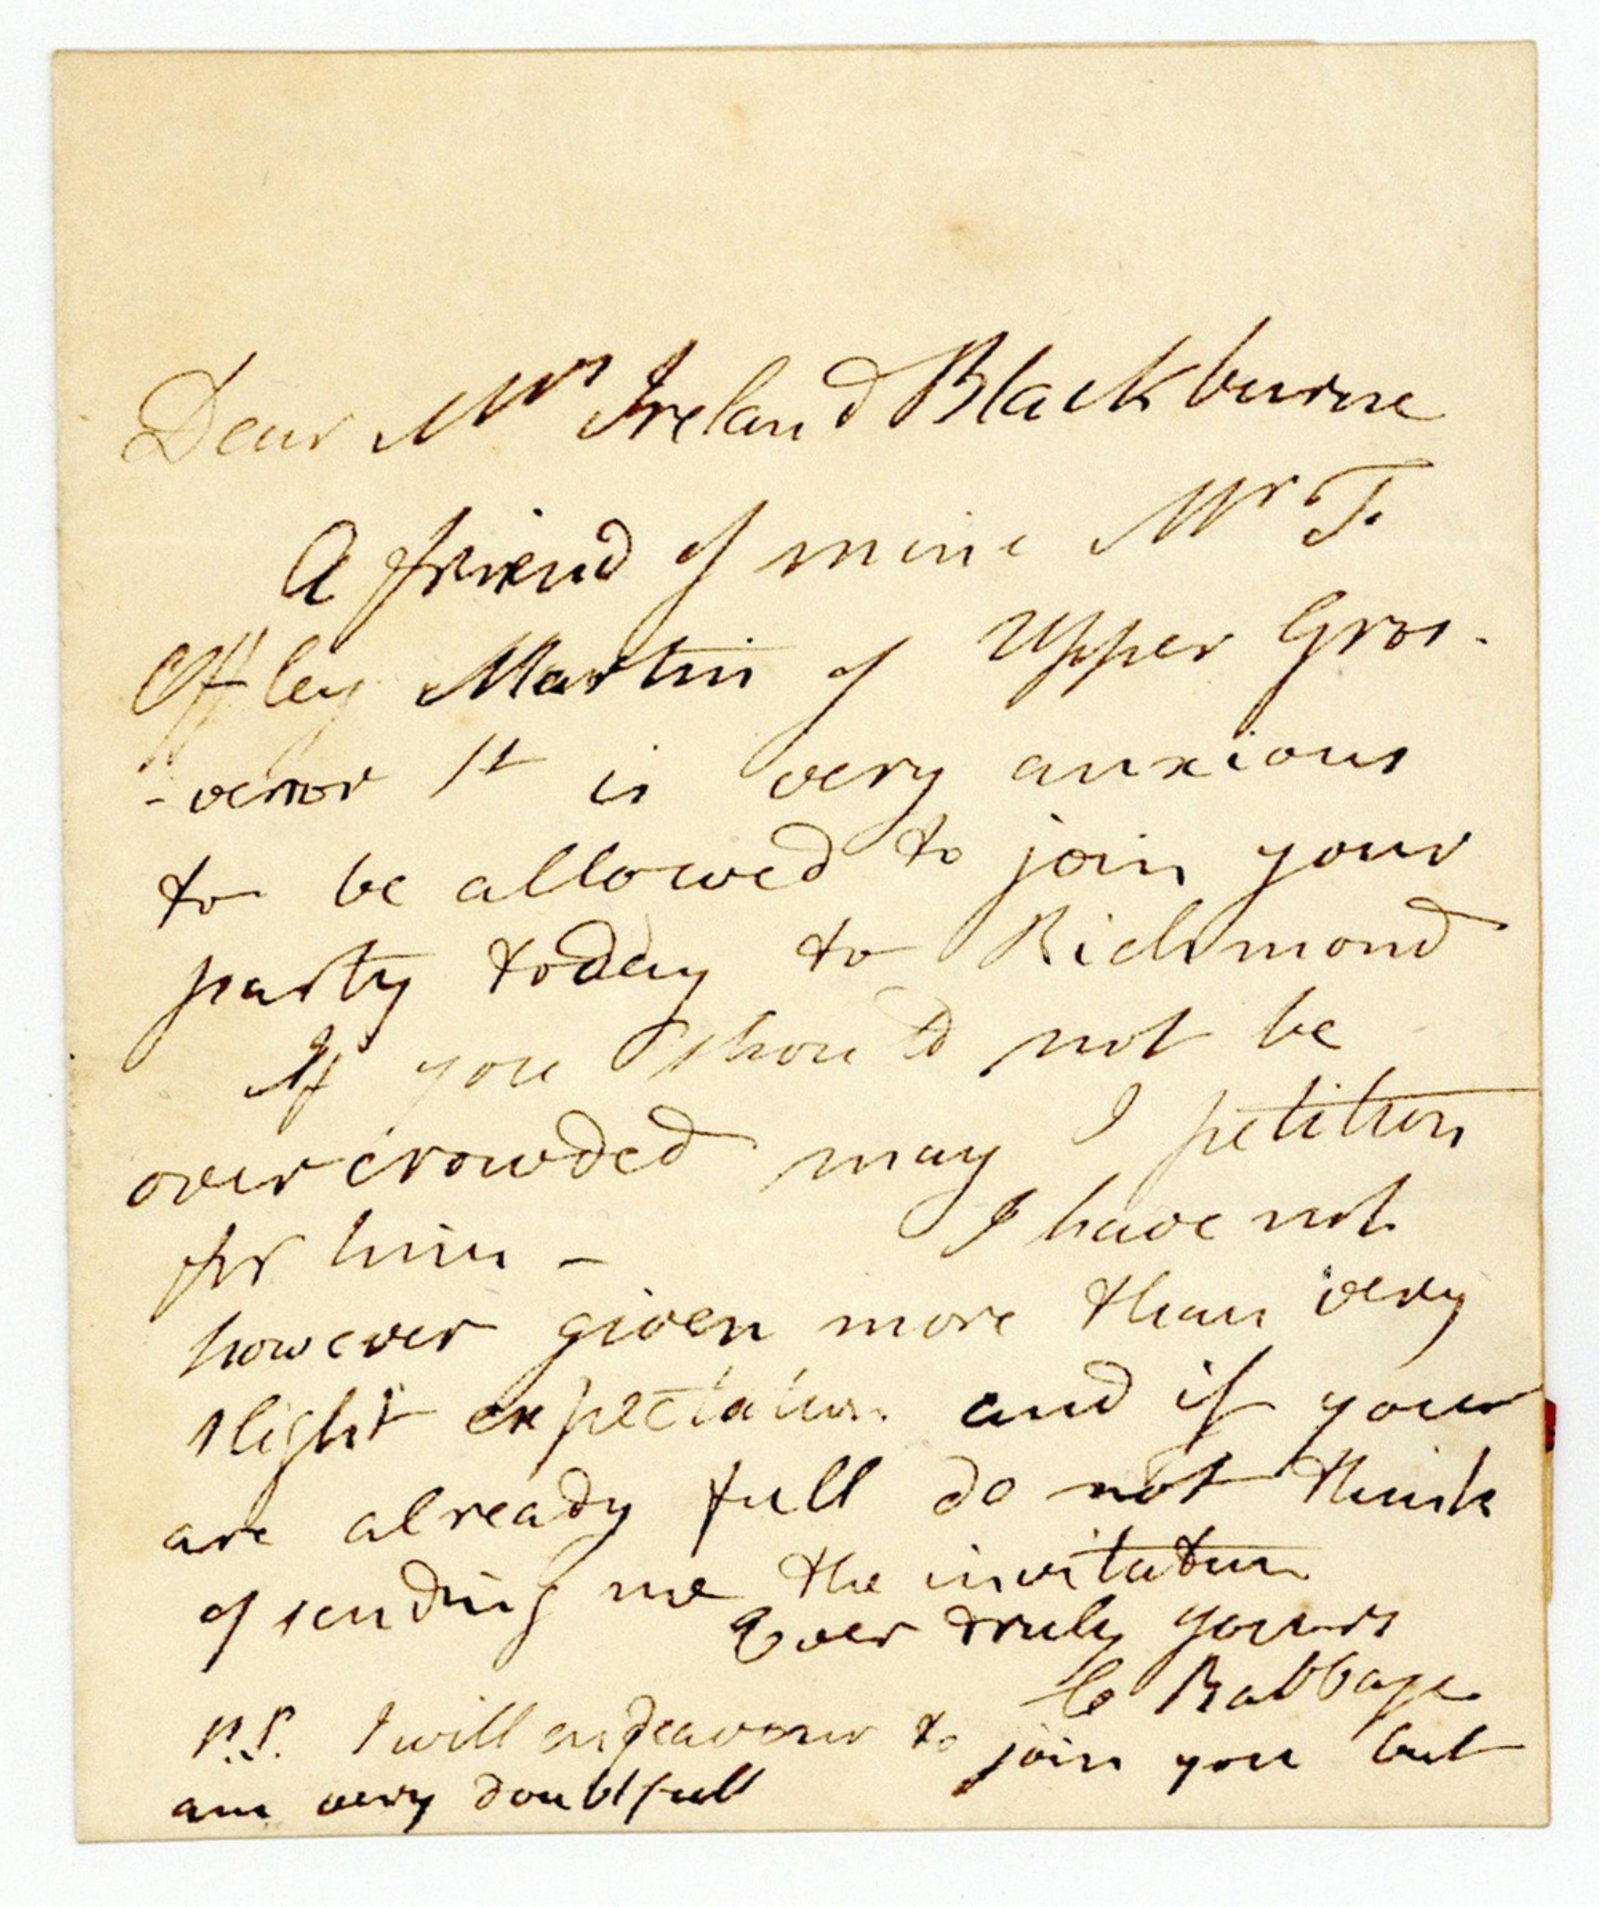 Dear Mrs Ireland Blackburne
A friend of mine Mr T.
Offley Martin of Upper Gros-
-venor St is very anxious
to be allowed to join your
party today to Richmond
If you should not be
over crowded may I petition
for him – I have not
however given more than very
slight expectation and if you
are already full do not think
of sending me the invitation
Ever truly yours
C Babbage
P.S. I will endeavour to join you but
am very doubtfull